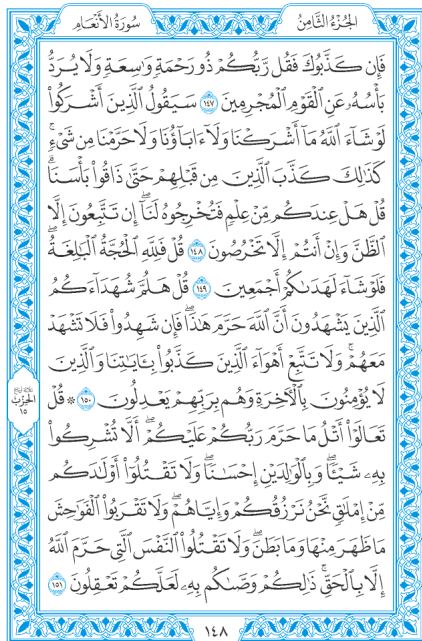 الجُزْءُ الثَّامِنُ
سُورَةُ الأَنْعَامِ
فَإِن كَذَّبُوكَ فَقُل رَّبُّكُمْ ذُو رَحْمَةٍ وَٰسِعَةٍ وَلَا يُرَدُّ
بَأْسُهُۥ عَنِ ٱلْقَوْمِ ٱلْمُجْرِمِينَ ١٤٧ سَيَقُولُ ٱلَّذِينَ أَشْرَكُوا۟
لَوْ شَآءَ ٱللَّهُ مَآ أَشْرَكْنَا وَلَآ ءَابَآؤُنَا وَلَا حَرَّمْنَا مِن شَىْءٍ ۚ
كَذَٰلِكَ كَذَّبَ ٱلَّذِينَ مِن قَبْلِهِمْ حَتَّىٰ ذَاقُوا۟ بَأْسَنَا ۗ
قُلْ هَلْ عِندَكُم مِّنْ عِلْمٍ فَتُخْرِجُوهُ لَنَآ ۖ إِن تَتَّبِعُونَ إِلَّا
ٱلظَّنَّ وَإِنْ أَنتُمْ إِلَّا تَخْرُصُونَ ١٤٨ قُلْ فَلِلَّهِ ٱلْحُجَّةُ ٱلْبَٰلِغَةُ ۖ
فَلَوْ شَآءَ لَهَدَىٰكُمْ أَجْمَعِينَ ١٤٩ قُلْ هَلُمَّ شُهَدَآءَكُمُ
ٱلَّذِينَ يَشْهَدُونَ أَنَّ ٱللَّهَ حَرَّمَ هَٰذَا ۖ فَإِن شَهِدُوا۟ فَلَا تَشْهَدْ
مَعَهُمْ ۚ وَلَا تَتَّبِعْ أَهْوَآءَ ٱلَّذِينَ كَذَّبُوا۟ بِـَٔايَٰتِنَا وَٱلَّذِينَ
لَا يُؤْمِنُونَ بِٱلْـَٔاخِرَةِ وَهُم بِرَبِّهِمْ يَعْدِلُونَ ١٥٠ ۞ قُلْ
تَعَالَوْا۟ أَتْلُ مَا حَرَّمَ رَبُّكُمْ عَلَيْكُمْ ۖ أَلَّا تُشْرِكُوا۟
بِهِۦ شَيْـًٔا ۖ وَبِٱلْوَٰلِدَيْنِ إِحْسَٰنًا ۖ وَلَا تَقْتُلُوٓا۟ أَوْلَٰدَكُم
مِّنْ إِمْلَٰقٍ ۖ نَّحْنُ نَرْزُقُكُمْ وَإِيَّاهُمْ ۖ وَلَا تَقْرَبُوا۟ ٱلْفَوَٰحِشَ
مَا ظَهَرَ مِنْهَا وَمَا بَطَنَ ۖ وَلَا تَقْتُلُوا۟ ٱلنَّفْسَ ٱلَّتِى حَرَّمَ ٱللَّهُ
إِلَّا بِٱلْحَقِّ ۚ ذَٰلِكُمْ وَصَّىٰكُم بِهِۦ لَعَلَّكُمْ تَعْقِلُونَ ١٥١
الحِزْبُ
١٥
١٤٨